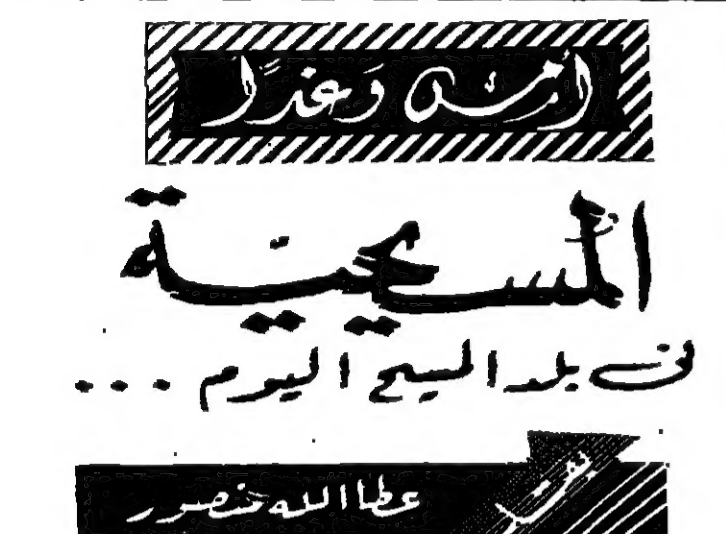 أمس وَغدًا
المسيحيّة
في بلد المسيح اليوم ...
بقلم
عطاالله منصور